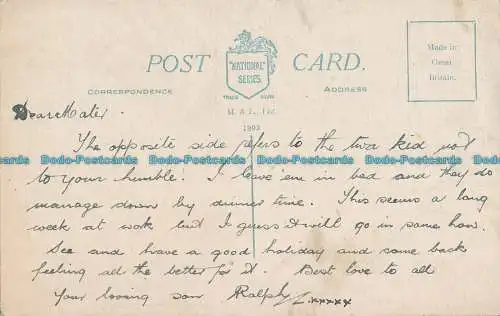 POST CARD.
"NATIONAL"
SERIES.
TRADE MARK
CORRESPONDENCE
ADDRESS
M. & L., Ltd.
1903
Made in
Great
Britain.
Dear Mater.
The opposite side refers to the two kid not
to your humble! I leave 'em in bed and they do
manage down by dinner time. This seems a long
week at work but I guess it will go in some how.
See and have a good holiday and come back
feeling all the better for it. Best love to all
Your loving son Ralph xxxxx
Dodo-Postcards Dodo-Postcards Dodo-Postcards Dodo-Postcards Dodo-Postcards
Dodo-Postcards Dodo-Postcards Dodo-Postcards Dodo-Postcards Dodo-Postcards